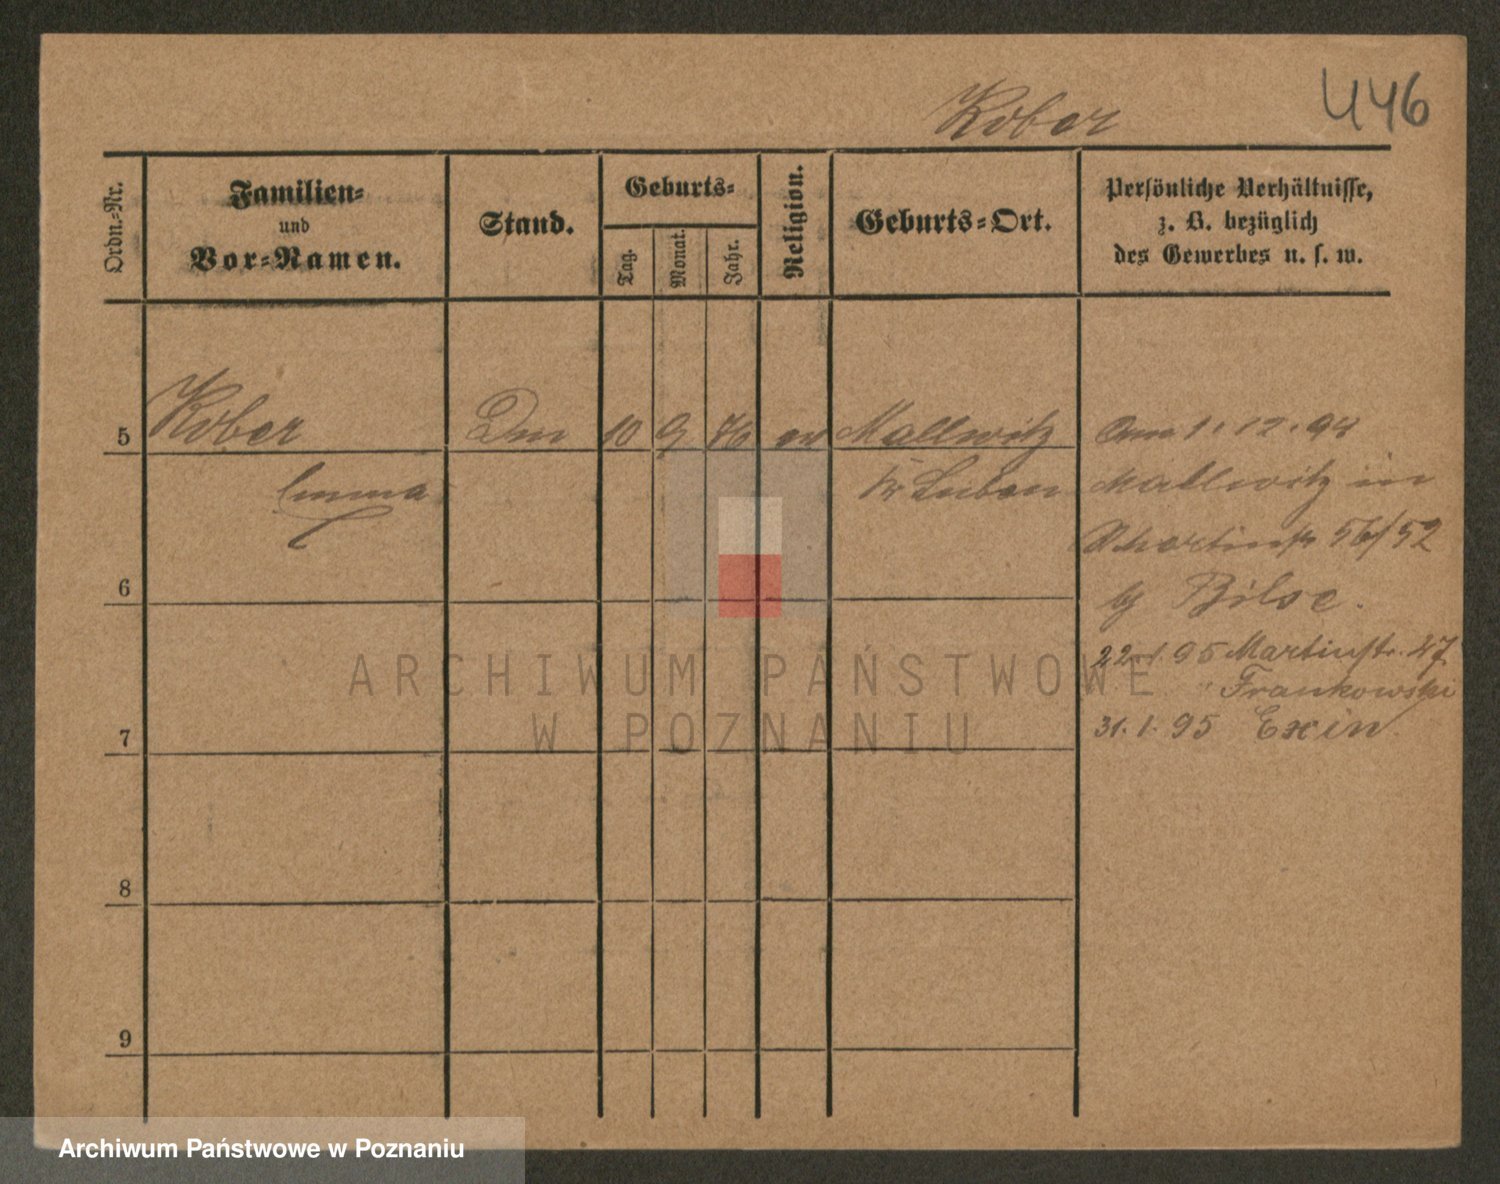 Kober
446
Ordn.-Nr.
Familien-
und
Vor-Namen.
Stand.
Geburts-
Tag.
Monat.
Jahr.
Religion.
Geburts-Ort.
Persönliche Verhältnisse,
z. B. bezüglich
des Gewerbes u. s. w.
5 Kober 10 9 76 ev Mallwitz 1. 12. 94
Emma Kr Luben Mallwitz in
Martinstr 56/52
6 Bilse.
22. 1. 95 Martinstr. 47
Frankowski
7 31. 1. 95 Exin
8
9
ARCHIWUM PAŃSTWOWE
W POZNANIU
Archiwum Państwowe w Poznaniu